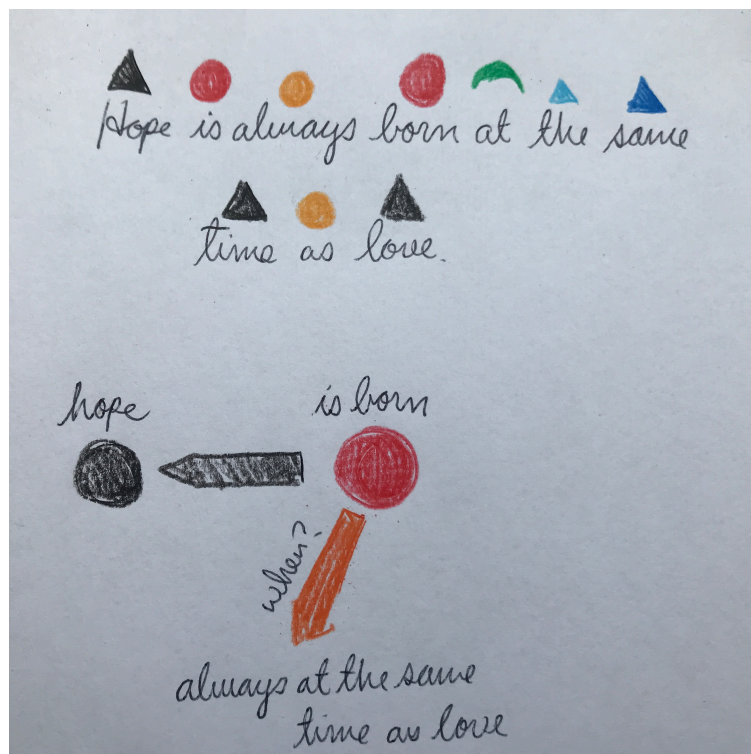 Hope is always born at the same
time as love.
hope
is born
when?
always at the same
time as love